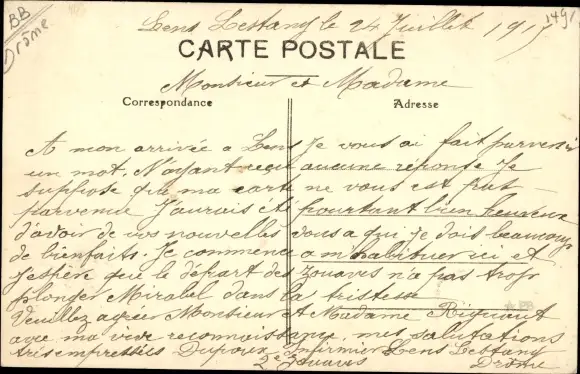 BB
Drôme
1491
Lens Lestang le 24 Juillet 1917
CARTE POSTALE
Monsieur et Madame
Correspondance
Adresse
A mon arrivée a Lens Je vous ai fait parvenir
un mot. N'ayant reçu aucune réponse Je
suppose que ma carte ne vous est pas
parvenue J'aurais été pourtant bien heureux
d'avoir de vos nouvelles vous a qui je dois beaucoup
de bienfaits. Je commence a m'habituer ici et
J'espère que le depart des zouaves n'a pas trop
plonger Mirabel dans la tristesse
Veuillez agréer Monsieur et Madame
avec ma vive reconnaissance mes salutations
très empressées Dupoux Infirmier Lens Lestang
2e Zouaves Drôme